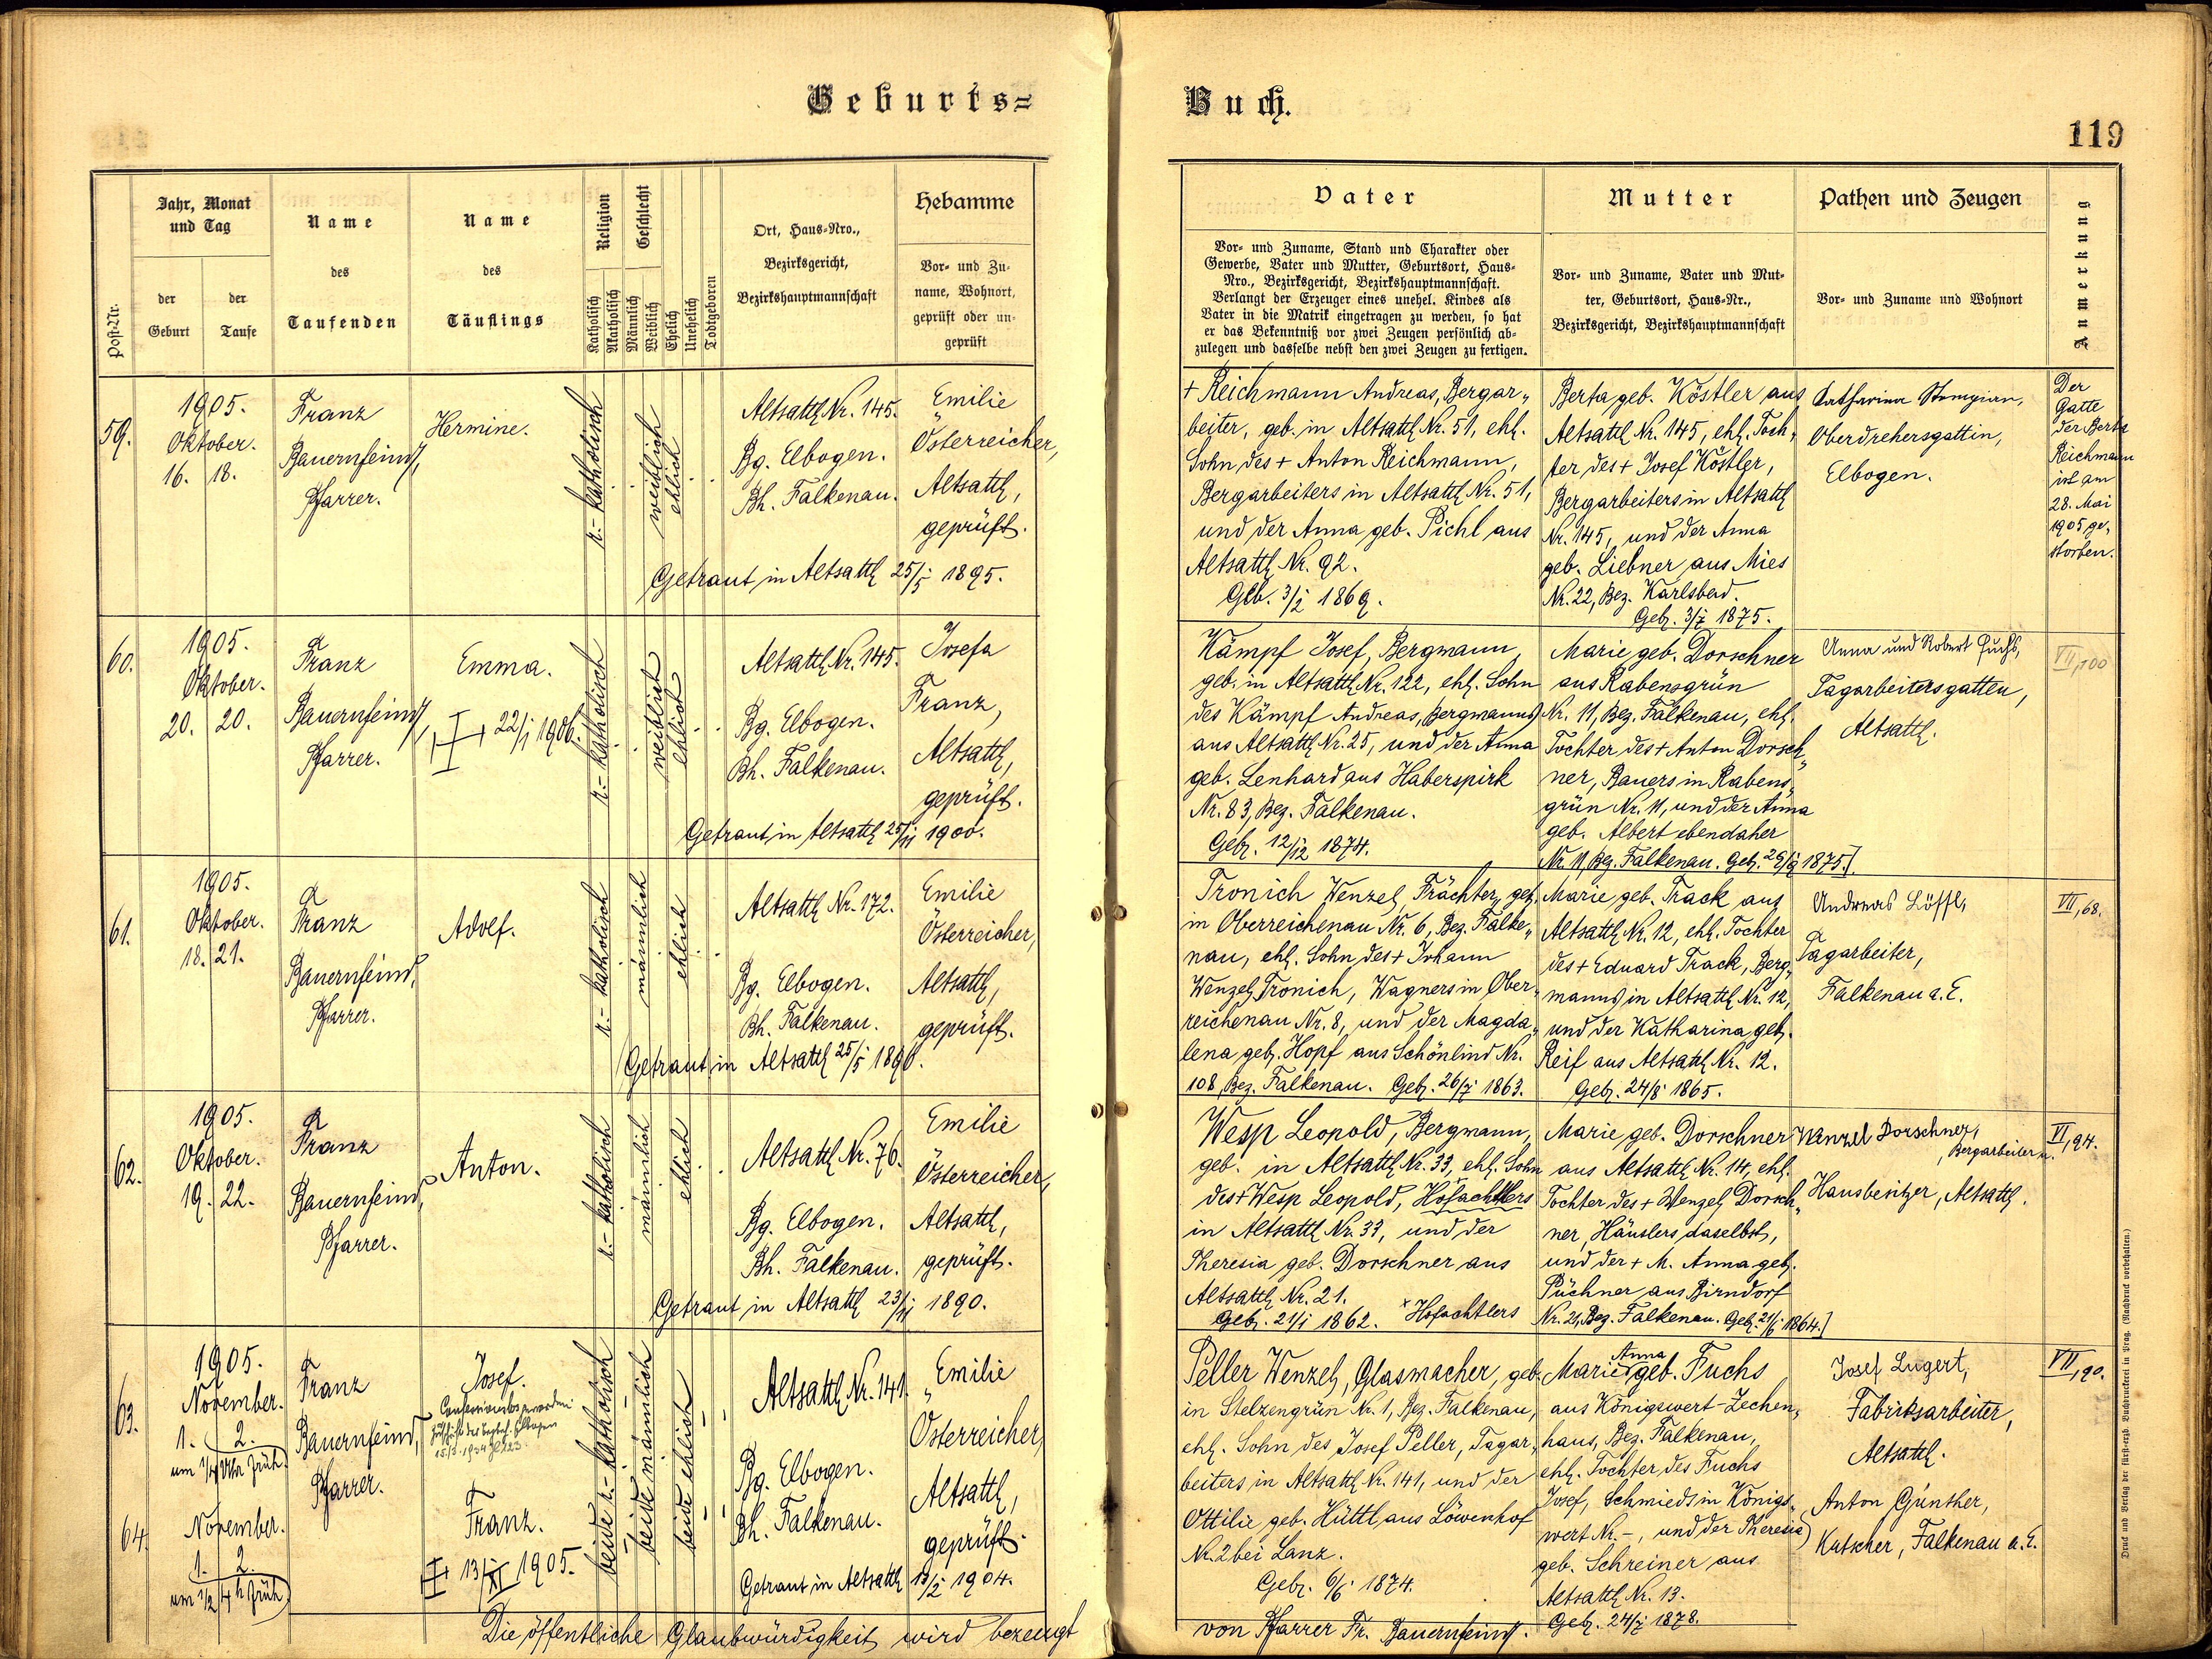 Geburts=
Buch.
119
Post-Nr.
Jahr, Monat
und Tag
der
Geburt
der
Taufe
Name
des
Taufenden
Name
des
Täuflings
Religion
Katholisch
Akatholisch
Geschlecht
Männlich
Weiblich
Ehelich
Unehelich
Todtgeboren
Ort, Haus-Nro.,
Bezirksgericht,
Bezirkshauptmannschaft
Hebamme
Vor- und Zu-
name, Wohnort,
geprüft oder un-
geprüft
Vater
Vor- und Zuname, Stand und Charakter oder
Gewerbe, Vater und Mutter, Geburtsort, Haus-
Nro., Bezirksgericht, Bezirkshauptmannschaft.
Verlangt der Erzeuger eines unehel. Kindes als
Vater in die Matrik eingetragen zu werden, so hat
er das Bekenntniß vor zwei Zeugen persönlich ab-
zulegen und dasselbe nebst den zwei Zeugen zu fertigen.
Mutter
Vor- und Zuname, Vater und Mut-
ter, Geburtsort, Haus-Nr.,
Bezirksgericht, Bezirkshauptmannschaft
Pathen und Zeugen
Vor- und Zuname und Wohnort
Anmerkung
59.
1905.
Oktober.
16. 18.
Franz
Bauernfeind,
Pfarrer.
Hermine.
r.- katholisch
weiblich
ehelich
Altsattl Nr. 145.
Bg. Elbogen.
Bh. Falkenau.
Emilie
Österreicher,
Altsattl,
geprüft.
Getraut in Altsattl 25/5 1895.
+ Reichmann Andreas, Bergar„
beiter, geb. in Altsattl Nr. 51, ehl.
Sohn des + Anton Reichmann,
Bergarbeiters in Altsattl Nr. 51,
und der Anna geb. Pichl aus
Altsattl Nr. 92.
Geb. 3/2 1869.
Berta geb. Köstler aus
Altsattl Nr. 145, ehl. Toch„
ter des + Josef Köstler,
Bergarbeiters in Altsattl
Nr. 145, und der Anna
geb. Liebner aus Mies
Nr. 22, Bez. Karlsbad.
Geb. 3/7 1875.
Katharina
Oberdrehersgattin,
Elbogen.
Der
Gatte
der Berta
Reichmann
ist am
28. Mai
1905 ge„
storben.
60.
1905.
Oktober.
20. 20.
Franz
Bauernfeind,
Pfarrer.
Emma.
+ 22/1 1906.
r.- katholisch
weiblich
ehelich
Altsattl Nr. 145.
Bg. Elbogen.
Bh. Falkenau.
Josefa
Franz,
Altsattl,
geprüft.
Getraut in Altsattl 25/11 1900.
Kämpf Josef, Bergmann,
geb. in Altsattl Nr. 122, ehl. Sohn
des Kämpf Andreas, Bergmanns
aus Altsattl Nr. 25, und der Anna
geb. Lenhard aus Haberspirk
Nr. 83, Bez. Falkenau.
Geb. 12/12 1874.
Marie geb. Dorschner
aus Rabensgrün
Nr. 11, Bez. Falkenau, ehl.
Tochter des + Anton Dorsch„
ner, Bauers in Rabens„
grün Nr. 11, und der Anna
geb. Albert ebendaher
Nr. 11, Bez. Falkenau. Geb. 29/9 1875.
Anna und Robert Fuchs,
Tagarbeitersgatten,
Altsattl.
VII, 100
61.
1905.
Oktober.
18. 21.
Franz
Bauernfeind,
Pfarrer.
Adolf.
r.- katholisch
männlich
ehelich
Altsattl Nr. 172.
Bg. Elbogen.
Bh. Falkenau.
Emilie
Österreicher,
Altsattl,
geprüft.
Getraut in Altsattl 25/5 1890.
Tronich Wenzel, Frächter, geb.
in Oberreichenau Nr. 6, Bez. Falke„
nau, ehl. Sohn des + Johann
Wenzel Tronich, Wagners in Ober„
reichenau Nr. 8, und der Magda„
lena geb. Hopf aus Schönlind Nr.
108, Bez. Falkenau. Geb. 26/7 1863.
Marie geb. Track aus
Altsattl Nr. 12, ehl. Tochter
des + Eduard Track, Berg„
manns in Altsattl Nr. 12,
und der Katharina geb.
Reif aus Altsattl Nr. 12.
Geb. 24/8 1865.
Andreas Löffl,
Tagarbeiter,
Falkenau a. E.
VII, 68.
62.
1905.
Oktober.
19. 22.
Franz
Bauernfeind,
Pfarrer.
Anton.
r.- katholisch
männlich
ehelich
Altsattl Nr. 76.
Bg. Elbogen.
Bh. Falkenau.
Emilie
Österreicher,
Altsattl,
geprüft.
Getraut in Altsattl 23/11 1890.
Wesp Leopold, Bergmann,
geb. in Altsattl Nr. 33, ehl. Sohn
des + Wesp Leopold, Hofachtlers
in Altsattl Nr. 33, und der
Theresia geb. Dorschner aus
Altsattl Nr. 21.
Geb. 21/1 1862. × Hofachtlers
Marie geb. Dorschner
aus Altsattl Nr. 14, ehl.
Tochter des + Wenzel Dorsch„
ner, Häuslers daselbst,
und der + M. Anna geb.
Püchner aus Birndorf
Nr. 21, Bez. Falkenau. Geb. 21/6 1864.
Wenzel Dorschner,
Bergarbeiter u.
Hausbesitzer, Altsattl.
VI, 94.
63.
1905.
November.
1. 2.
um 1/4 Uhr früh
Franz
Bauernfeind,
Pfarrer.
Josef.
64.
November.
1. 2.
um 1/2 4 h früh
Franz.
+ 13/XI 1905.
beide r.- katholisch
beide männlich
beide ehelich
Altsattl Nr. 141.
Bg. Elbogen.
Bh. Falkenau.
Emilie
Österreicher,
Altsattl,
geprüft.
Getraut in Altsattl 13/2 1904.
Peller Wenzel, Glasmacher, geb.
in Stelzengrün Nr. 1, Bez. Falkenau,
ehl. Sohn des Josef Peller, Tagar„
beiters in Altsattl Nr. 141, und der
Ottilie geb. Hüttl aus Löwenhof
Nr. 2 bei Lanz.
Geb. 6/6 1874.
Anna
Marie geb. Fuchs
aus Königswert-Zechen„
haus, Bez. Falkenau,
ehl. Tochter des Fuchs
Josef, Schmieds in Königs„
wert Nr. -, und der Theresia
geb. Schreiner aus
Altsattl Nr. 13.
Geb. 24/7 1878.
Josef Lugert,
Fabriksarbeiter,
Altsattl.
Anton Günther,
Kutscher, Falkenau a. E.
VII, 90.
Die öffentliche Glaubwürdigkeit wird bezeugt
von Pfarrer Fr. Bauernfeind.
Druck und Verlag der fürst-erzb. Buchdruckerei in Prag. (Nachdruck vorbehalten.)